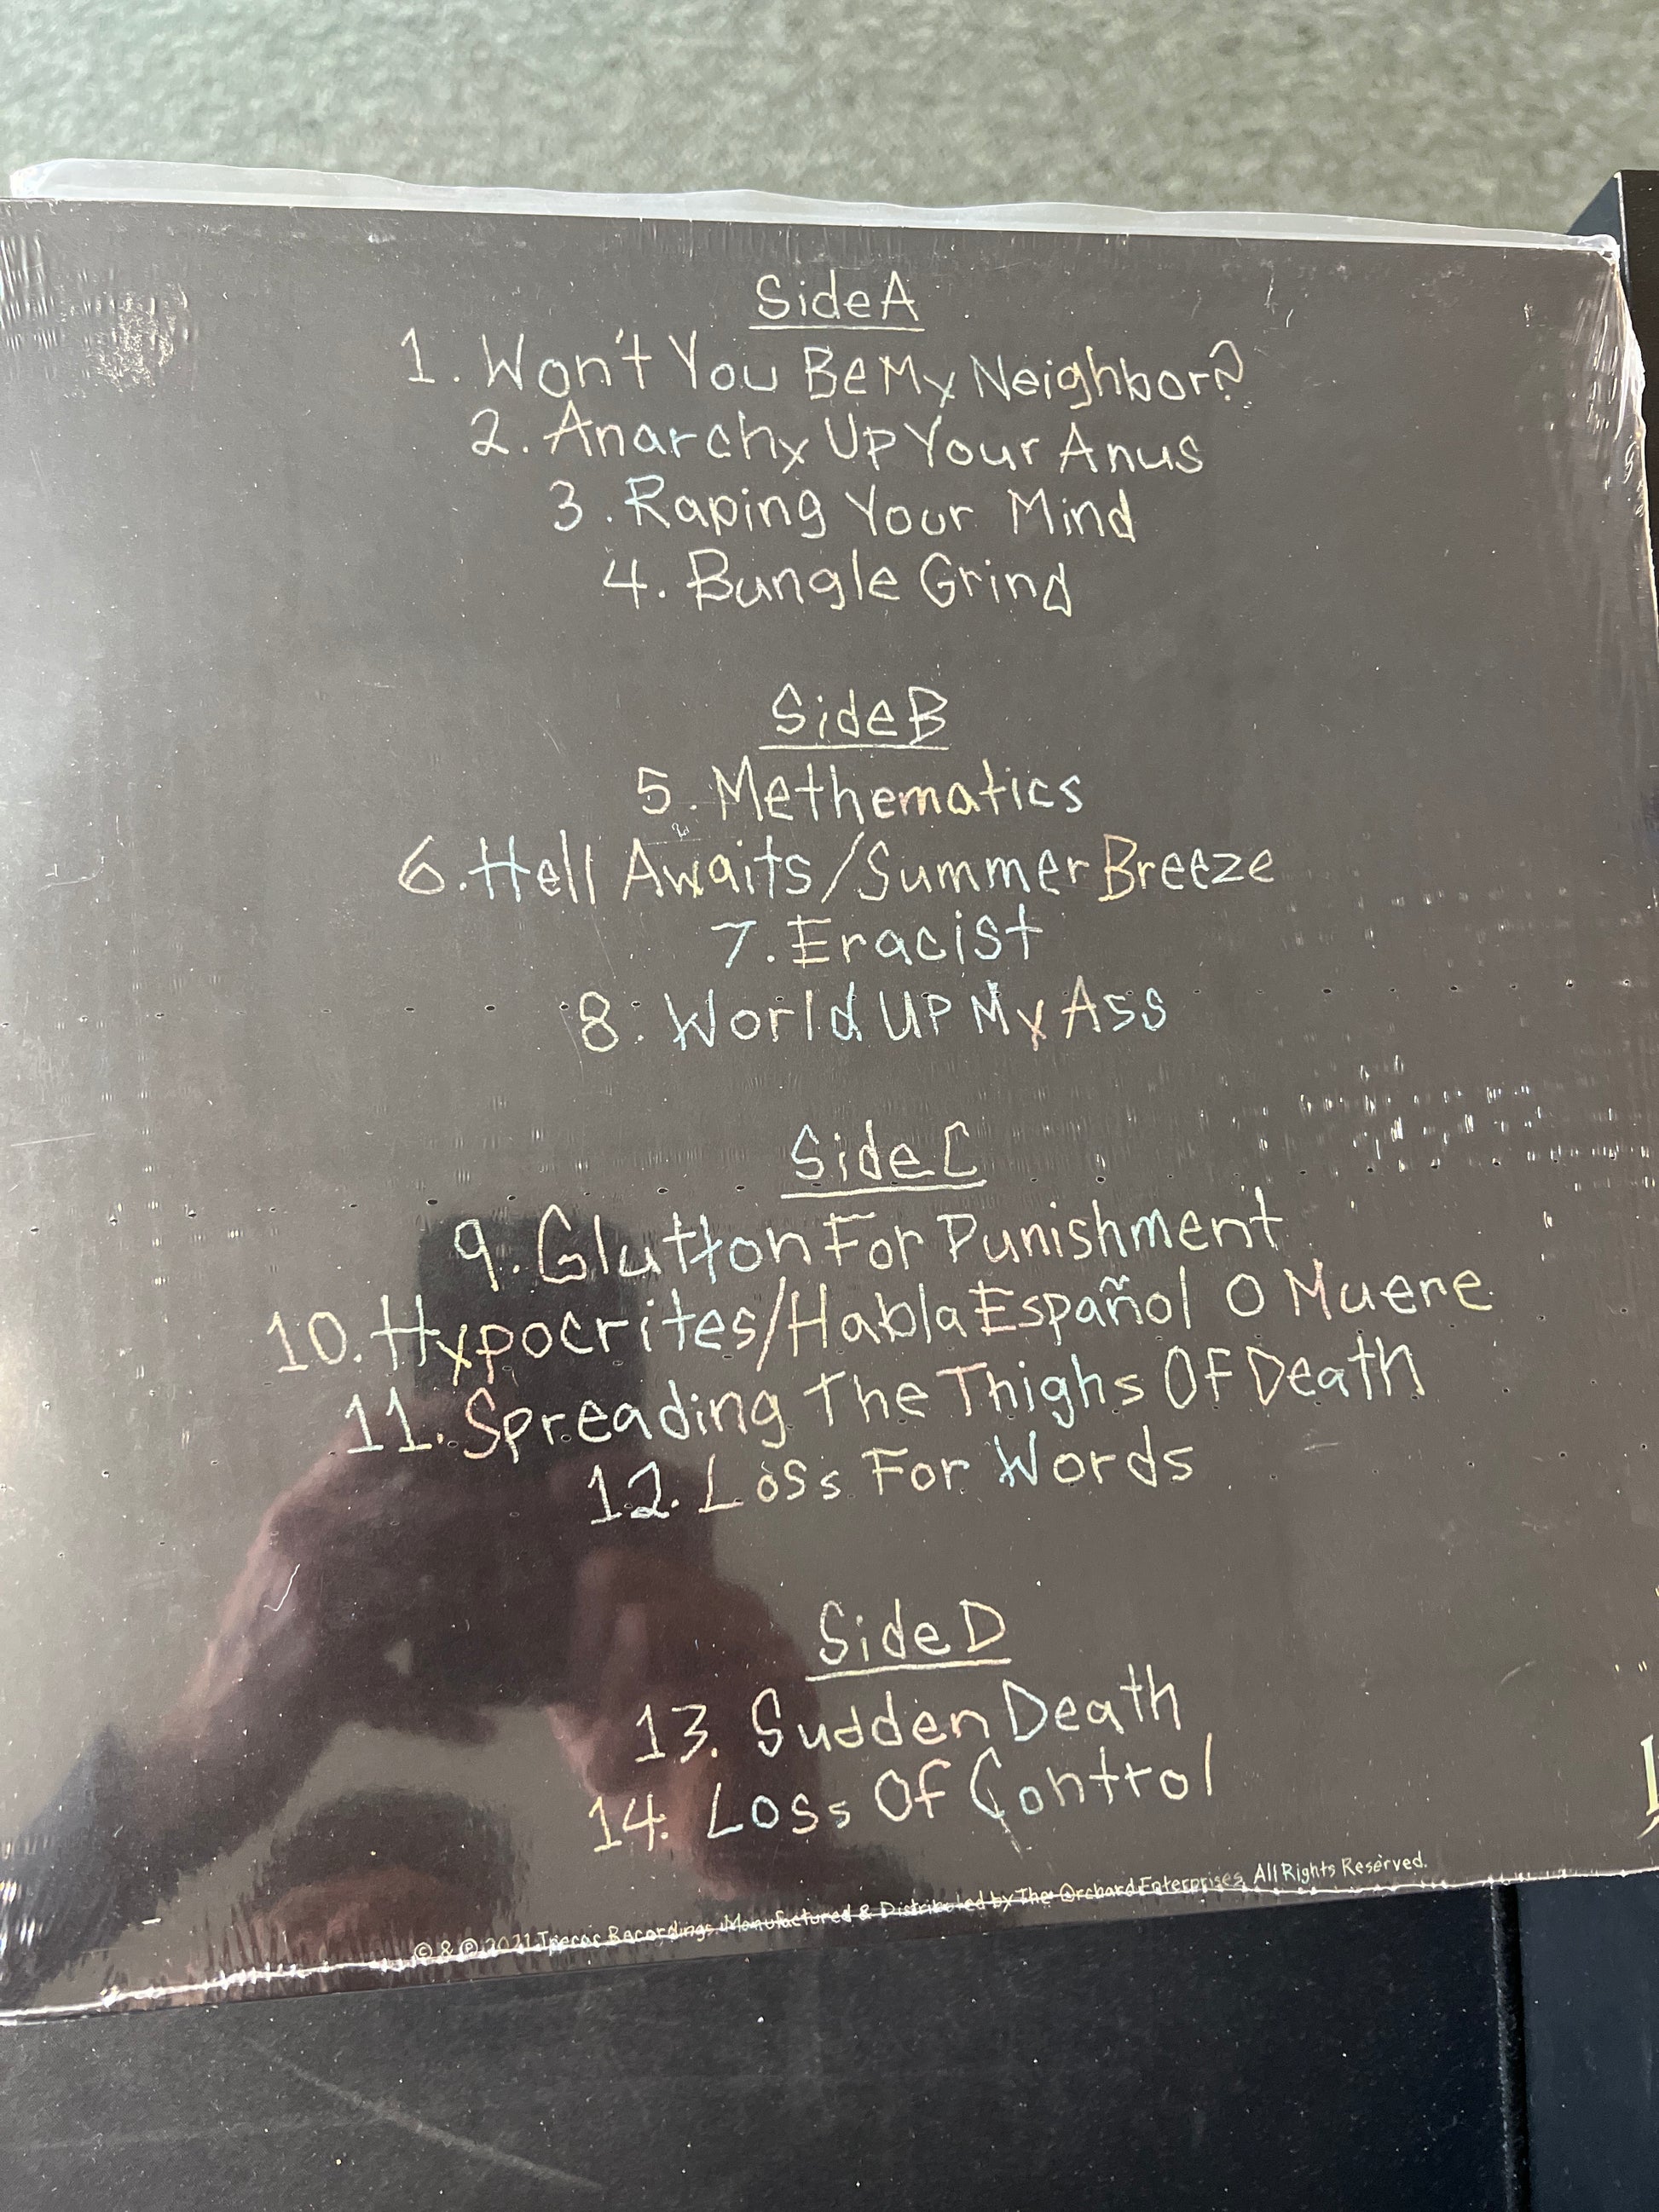 Side A
1. Won't You Be My Neighbor?
2. Anarchy Up Your Anus
3. Raping Your Mind
4. Bungle Grind
Side B
5. Methematics
6. Hell Awaits/Summer Breeze
7. Eracist
8. World Up My Ass
Side C
9. Glutton For Punishment
10. Hypocrites/Habla Español O Muere
11. Spreading The Thighs Of Death
12. Loss For Words
Side D
13. Sudden Death
14. Loss Of Control
© & ℗ 2021 Ipecac Recordings. Manufactured & Distributed by The Orchard Enterprises, All Rights Reserved.